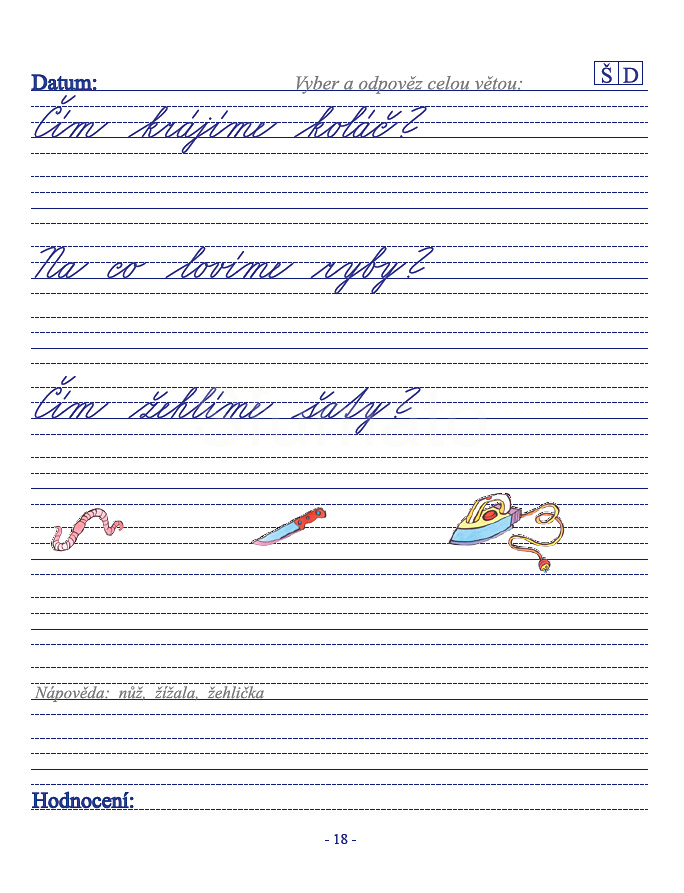 Š D
Datum: Vyber a odpověz celou větou:
Čím krájíme koláč?
Na co lovíme ryby?
Čím žehlíme šaty?
Nápověda: nůž, žížala, žehlička
Hodnocení:
- 18 -